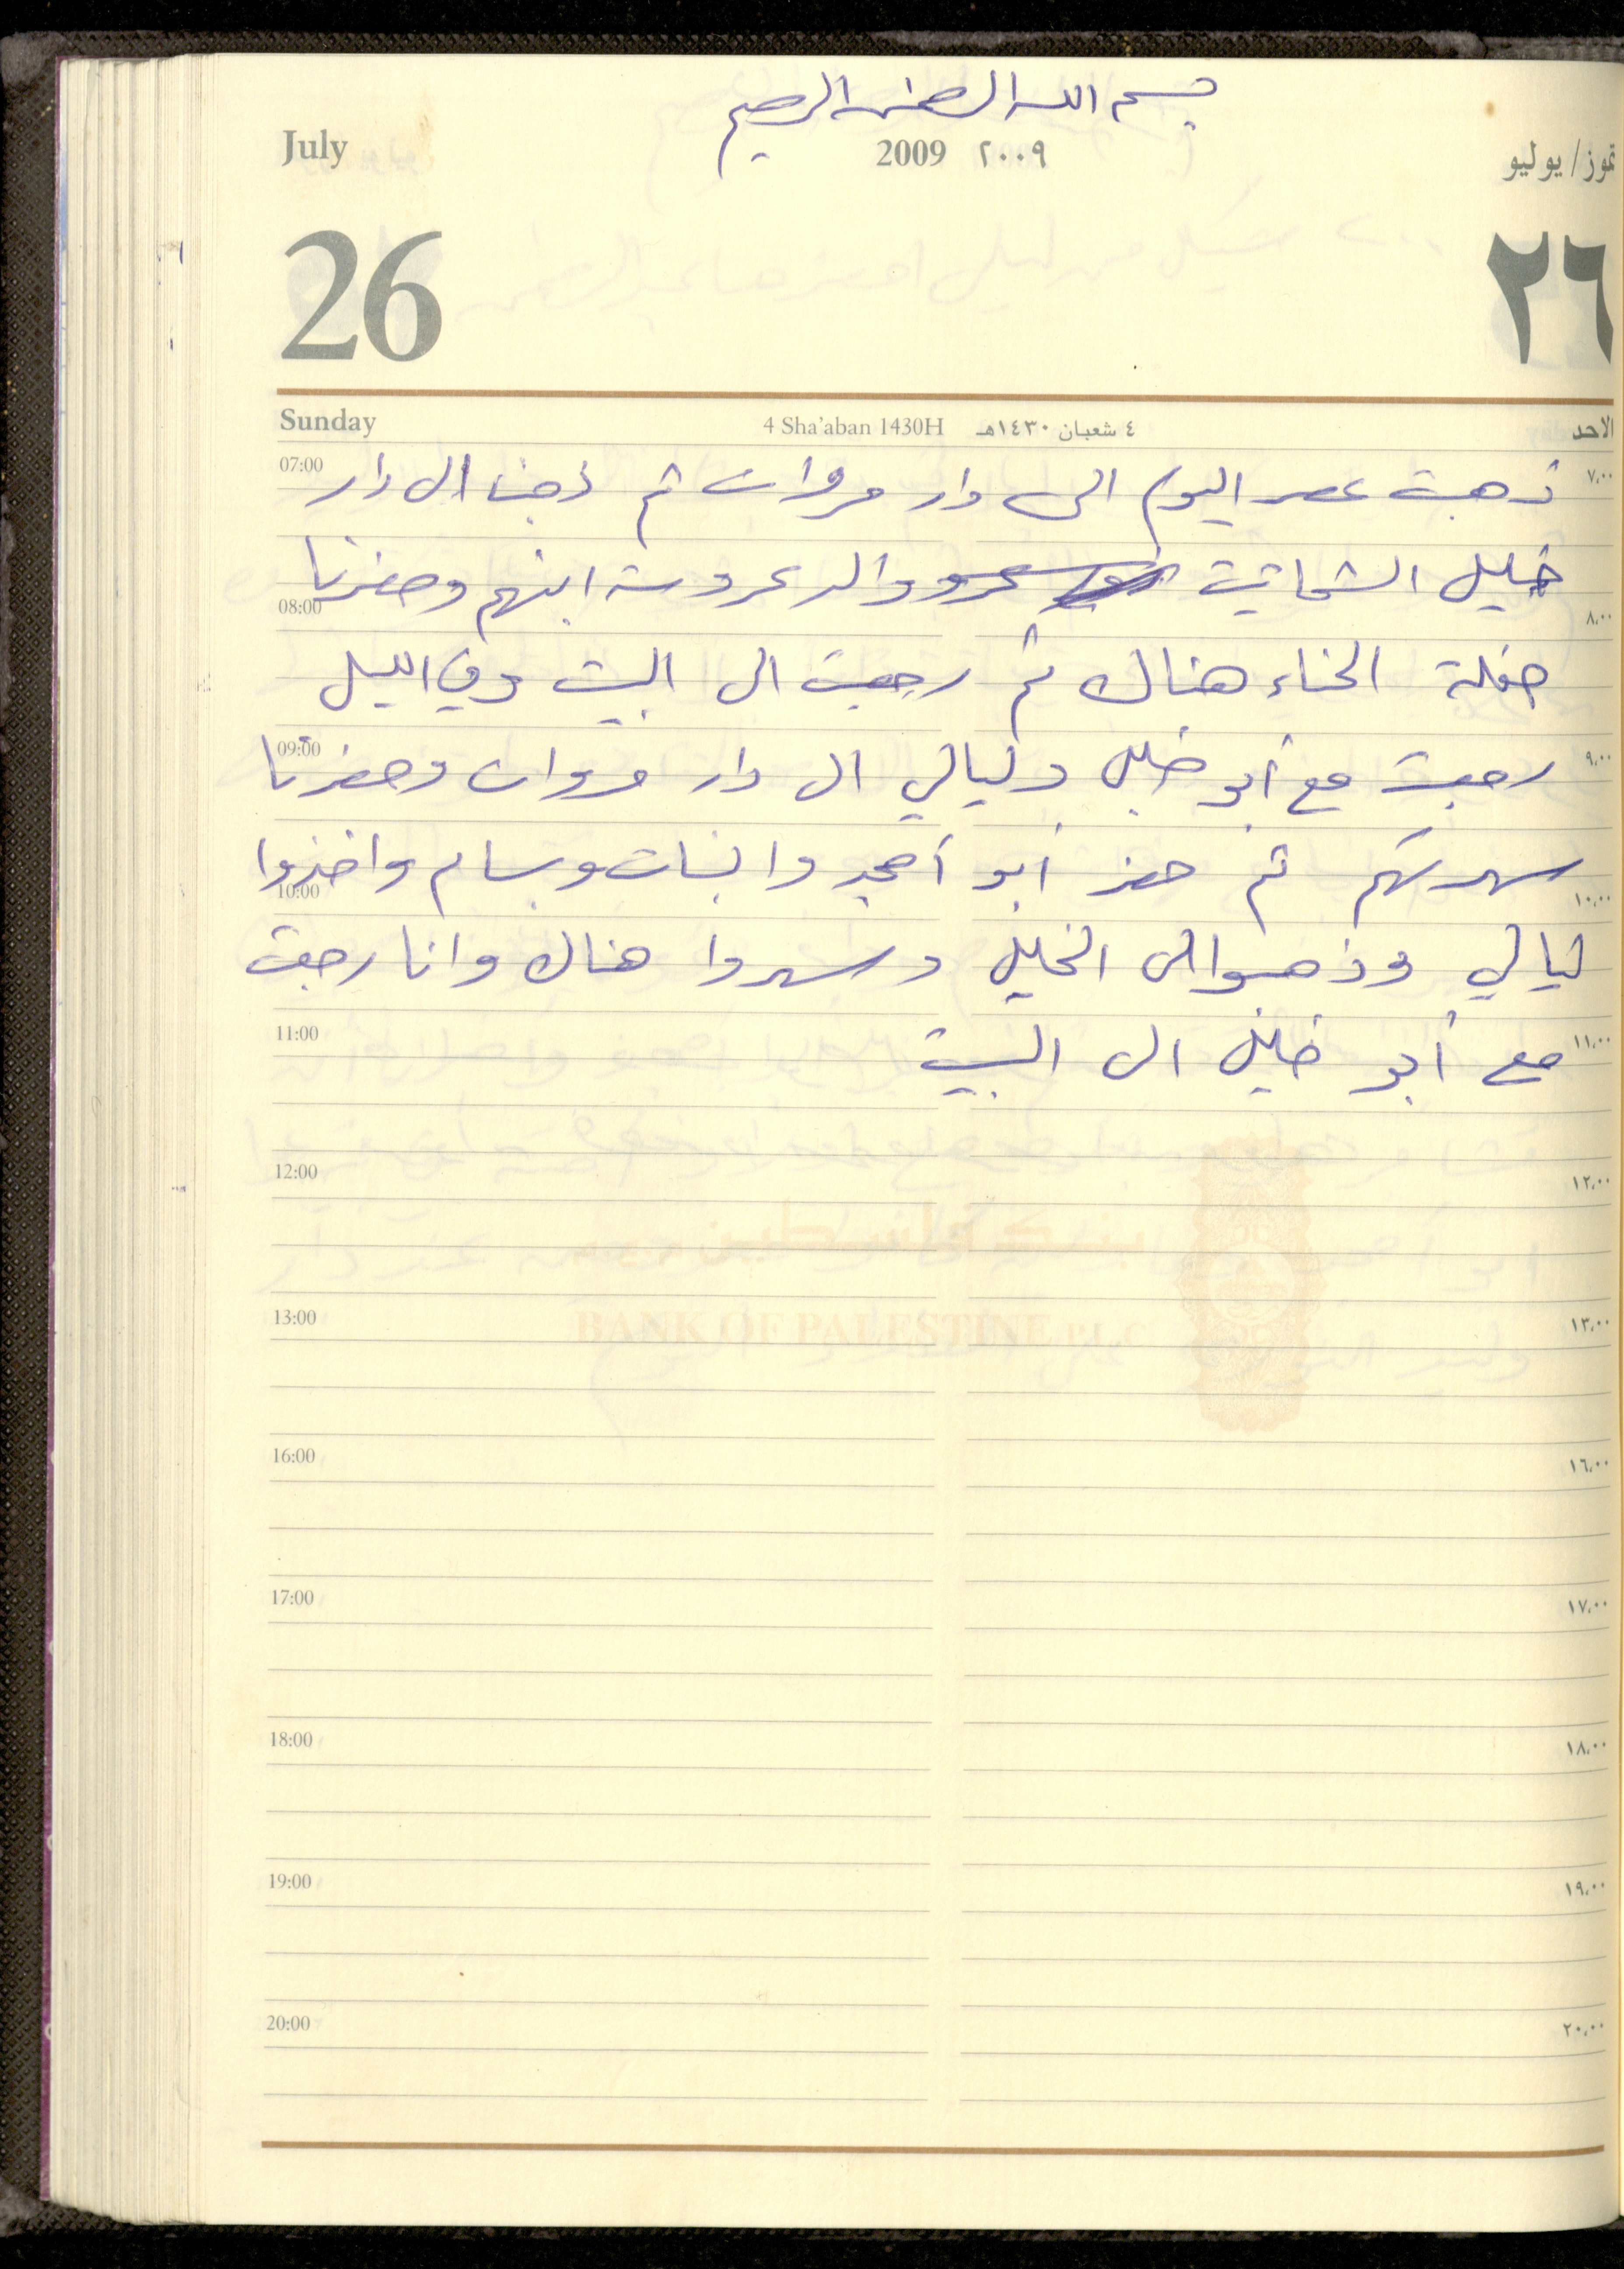 بسم الله الرحمن الرحيم
July 2009 ٢٠٠٩ تموز/يوليو
26 ٢٦
Sunday 4 Sha'aban 1430H ٤ شعبان ١٤٣٠هـ الاحد
07:00 ذهبت عصر اليوم الى دار مروان ثم ذهبنا الى دار ٧،٠٠
خليل الشحاتيت والد عروسة ابنهم وحضرنا
08:00 ٨،٠٠
حفلة الحناء هناك ثم رجعت الى البيت وفي الليل
09:00 رجعت مع أبو خليل وليالي الى دار مروان وحضرنا ٩،٠٠
سهرتهم ثم حضر أبو أمجد والبنات وبسام واخذوا
10:00 ١٠،٠٠
ليالي وذهبوا الى الخليل وسهروا هناك وانا رجعت
11:00 مع أبو خليل الى البيت ١١،٠٠
12:00 ١٢،٠٠
بنك فلسطين
13:00 BANK OF PALESTINE PLC ١٣،٠٠
16:00 ١٦،٠٠
17:00 ١٧،٠٠
18:00 ١٨،٠٠
19:00 ١٩،٠٠
20:00 ٢٠،٠٠